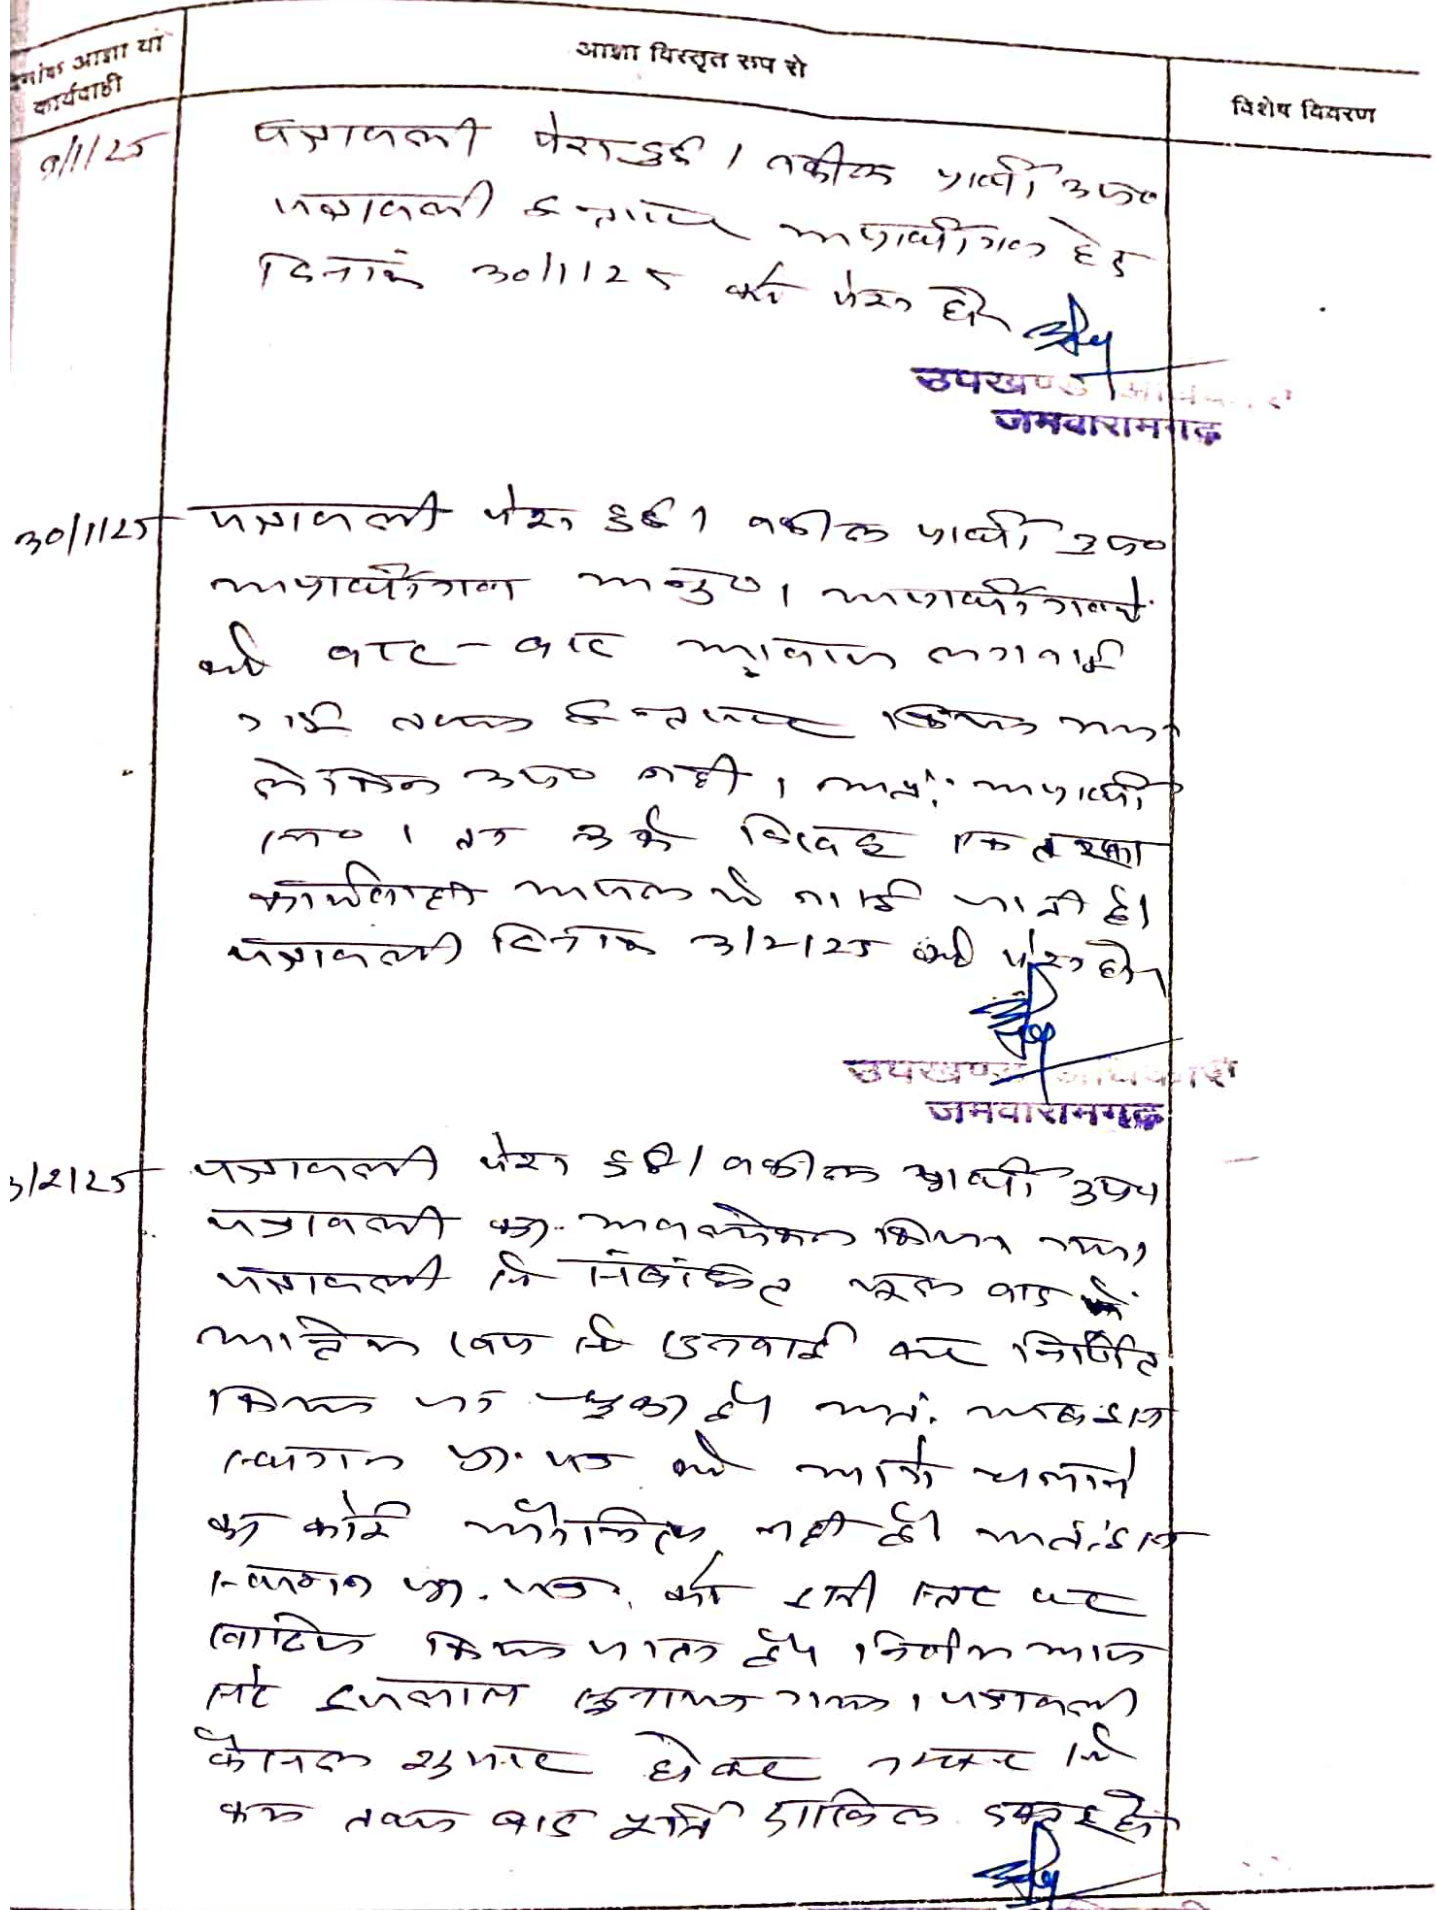 दिनांक आज्ञा या
कार्यवाही
आज्ञा विस्तृत रूप से
विशेष विवरण
9/1/25
पत्रावली पेश हुई । वकील प्रार्थी उप०
पत्रावली इन्तजार अप्रार्थीगण हेतु
दिनांक 30/1/25 को पेश हो
उपखण्ड अधिकारी
जमवारामगढ़
30/1/25
पत्रावली पेश हुई । वकील प्रार्थी उप०
अप्रार्थीगण अनु० । अप्रार्थीगण
को बार-बार आवाज लगवाई
गई तथा इन्तजार किया गया
लेकिन उप० नही । अतः अप्रार्थी
सं० 1 ता 3 के विरुद्ध एकतरफा
कार्यवाही अमल मे लाई जाती है।
पत्रावली दिनांक 3/2/25 को पेश हो
उपखण्ड अधिकारी
जमवारामगढ़
3/2/25
पत्रावली पेश हुई । वकील प्रार्थी उप०
पत्रावली का अवलोकन किया गया।
पत्रावली मे मूल वाद
अन्तिम रूप से सुनवाई कर निर्णित
किया जा चुका है। अतः
स्थगन प्रा. पत्र को आगे चलाने
का कोई औचित्य नही है। अतः इस
स्थगन प्रा. पत्र को इसी स्तर पर
खारिज किया जाता है। निर्णय आज
सरे इजलास सुनाया गया । पत्रावली
फैसल शुमार होकर नम्बर से
कम तथा बाद पूर्ति दाखिल दफ्तर हो